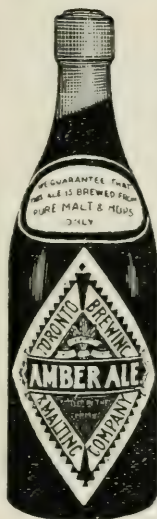 WE GUARANTEE THAT
THIS ALE IS BREWED FROM
PURE MALT & HOPS
ONLY
TORONTO BREWING
AMBER ALE
& MALTING COMPANY